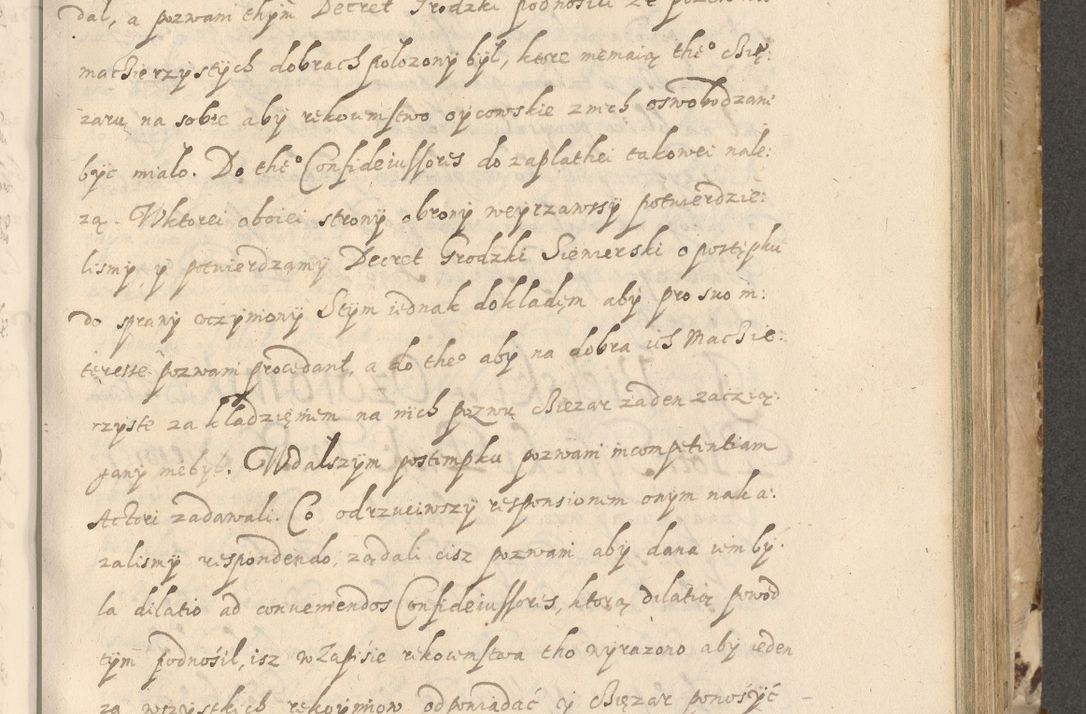 dał, a pozwani chym Decret Grodzki podnosili ze
macierzystych dobrach polozony był, ktore nie maią the° cięz:
zaru na sobie aby rękoiemstwo oycowskie z nich oswobodzane
być miało. Do the° Confideiussores do zapłathei takowei nale:
zą. W ktorei oboiei strony obrony weyrzawszy potwierdzie:
lismy y potwierdzamy Decret Grodzki Siewierski o postępku
do sprawy uczyniony Stym iednak dokładem aby pro suo in:
teresse pozwani procedant, a do the° aby na dobra ich Macie:
rzyste za kładzięniem na nich pozwu cięzar zaden zaciąg:
gany niebył. W dalszym postempku pozwani incompetentiam
Actori zadawali. Co odrzuciwszy responsionem onym naka:
zalismy respondendo, ządali cisz pozwani aby dana iem by:
ła dilatio ad conueniendos Confideiussores, ktorą dilatią powod
tym podnosił, isz w Zapisie rekoiemstwa tho wyrazono aby ieden
za wszystkich rekoymiow odpowiadać y cięzar ponosyć